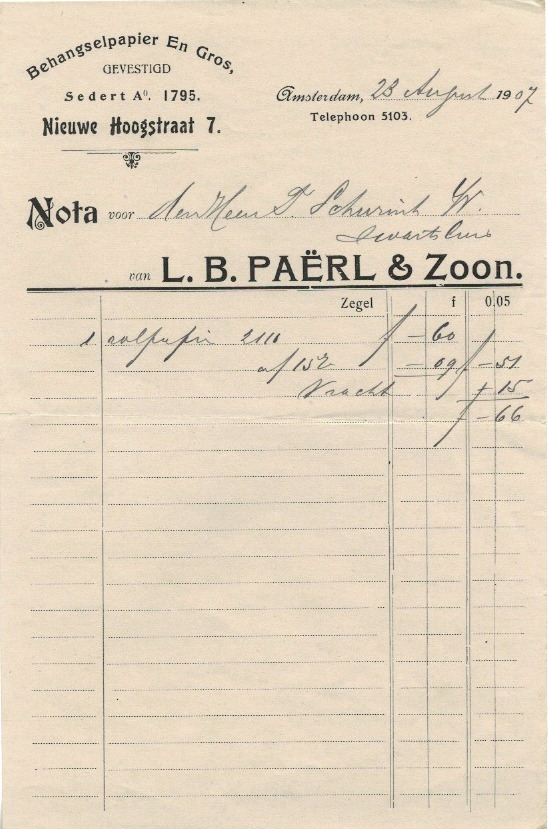 Behangselpapier En Gros,
GEVESTIGD
Sedert Aº. 1795.
Nieuwe Hoogstraat 7.
Amsterdam, 23 August 1907
Telephoon 5103.
Nota voor den Heer
van L. B. PAËRL & Zoon.
Zegel f 0.05
1 2116 f -60
af 15% -09 f -51
Vracht + 15
f -66